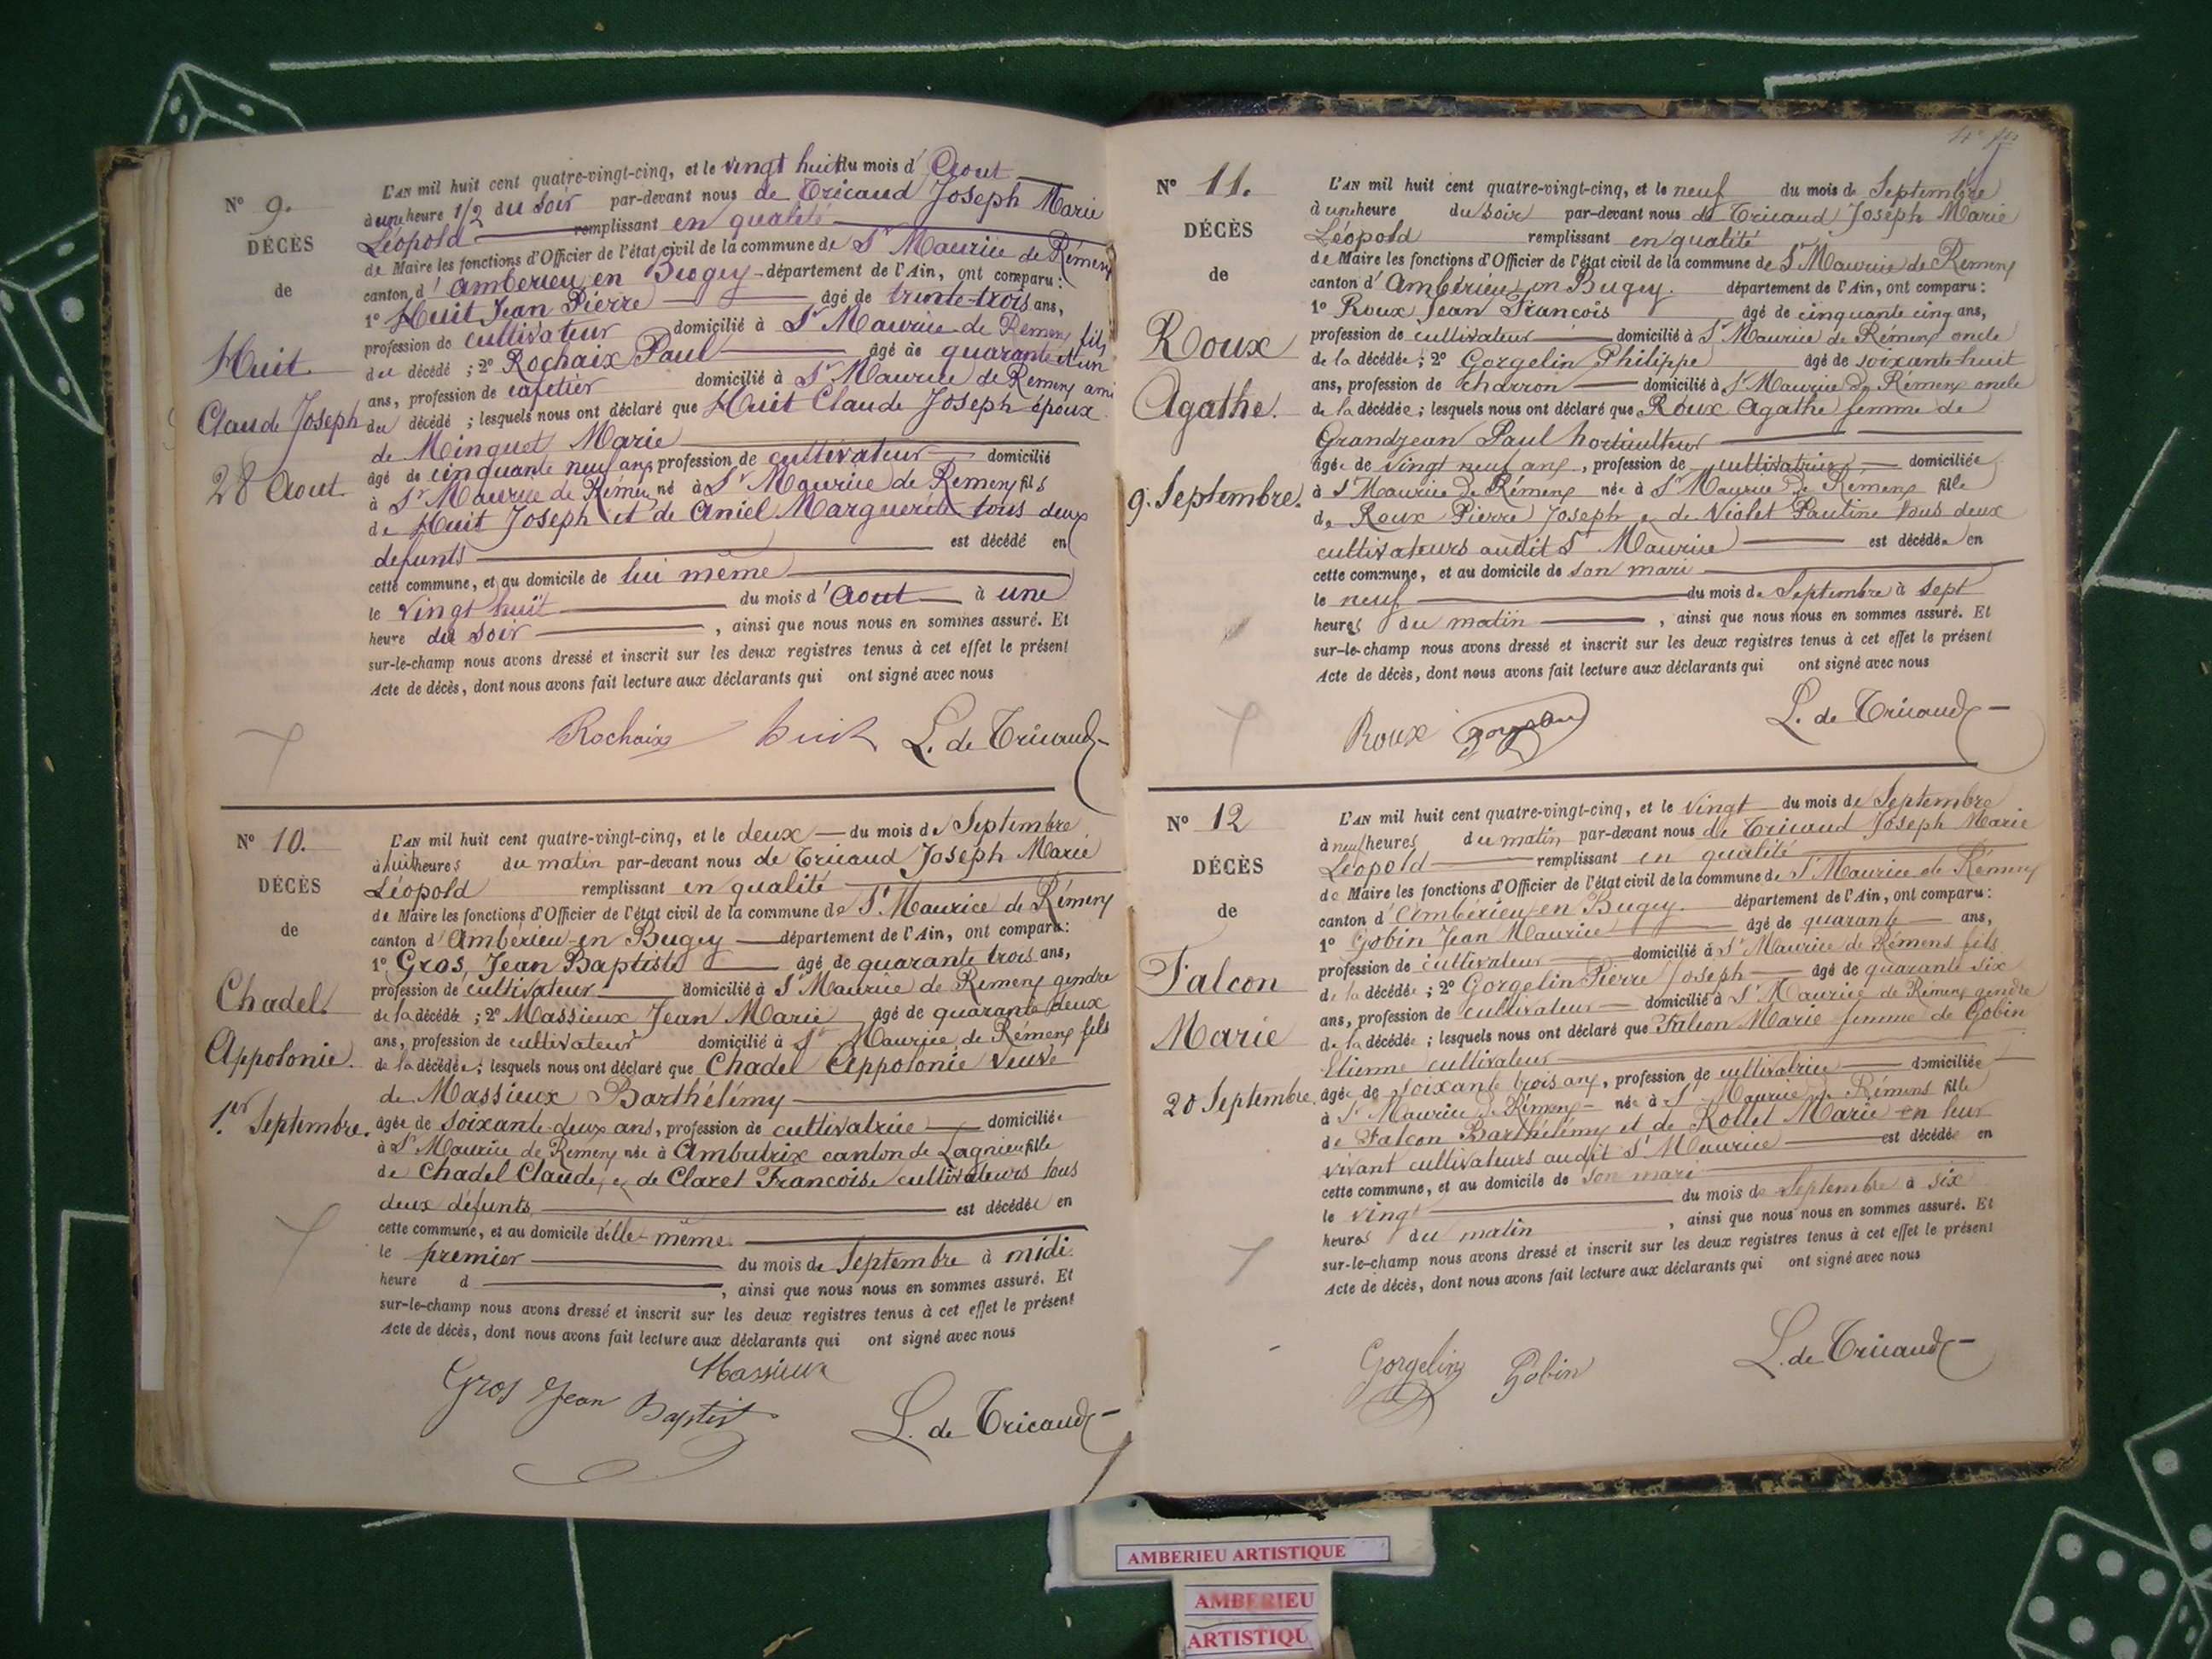 N° 9.
DÉCÈS
de
Huit
Claude Joseph
28 Aout.
L'AN mil huit cent quatre-vingt-cinq, et le vingt huit du mois d'Aout
à une heure 1/2 du soir par-devant nous de Tricaud Joseph Marie
Léopold remplissant en qualité
de Maire les fonctions d'Officier de l'état civil de la commune de St Maurice de Rémens
canton d'Ambérieu en Bugey département de l'Ain, ont comparu :
1° Huit Jean Pierre âgé de trente-trois ans,
profession de cultivateur domicilié à St Maurice de Remens fils
du décédé ; 2° Rochaix Paul âgé de quarante et un
ans, profession de cafetier domicilié à St Maurice de Remens ami
du décédé ; lesquels nous ont déclaré que Huit Claude Joseph époux
de Minguet Marie
âgé de cinquante neuf ans profession de cultivateur domicilié
à St Maurice de Rémens né à St Maurice de Remens fils
de Huit Joseph et de Aniel Marguerite tous deux
defunts est décédé en
cette commune, et au domicile de lui même
le vingt huit du mois d'Aout à une
heure du soir , ainsi que nous nous en sommes assuré. Et
sur-le-champ nous avons dressé et inscrit sur les deux registres tenus à cet effet le présent
Acte de décès, dont nous avons fait lecture aux déclarants qui ont signé avec nous
Rochaix huit L. de Tricaud
N° 10.
DÉCÈS
de
Chadel
Appolonie.
1er Septembre.
L'AN mil huit cent quatre-vingt-cinq, et le deux du mois de Septembre
à huit heures du matin par-devant nous de Tricaud Joseph Marie
Léopold remplissant en qualité
de Maire les fonctions d'Officier de l'état civil de la commune de St Maurice de Rémens
canton d'Ambérieu en Bugey département de l'Ain, ont comparu :
1° Gros Jean Baptiste âgé de quarante trois ans,
profession de cultivateur domicilié à St Maurice de Remens gendre
de la décédée ; 2° Massieux Jean Marie âgé de quarante deux
ans, profession de cultivateur domicilié à St Maurice de Rémens fils
de la décédée ; lesquels nous ont déclaré que Chadel Appolonie veuve
de Massieux Barthélémy
âgée de soixante-deux ans, profession de cultivatrice domiciliée
à St Maurice de Remens née à Ambutrix canton de Lagnieu fille
de Chadel Claude, & de Claret Francoise cultivateurs tous
deux défunts est décédée en
cette commune, et au domicile d'elle-même.
le premier du mois de Septembre à midi.
heure d , ainsi que nous nous en sommes assuré. Et
sur-le-champ nous avons dressé et inscrit sur les deux registres tenus à cet effet le présent
Acte de décès, dont nous avons fait lecture aux déclarants qui ont signé avec nous
Massieux
Gros Jean Baptist L. de Tricaud
N° 11.
DÉCÈS
de
Roux
Agathe.
9. Septembre.
L'AN mil huit cent quatre-vingt-cinq, et le neuf du mois de Septembre
à une heure du soir par-devant nous de Tricaud Joseph Marie
Léopold remplissant en qualité
de Maire les fonctions d'Officier de l'état civil de la commune de St Maurice de Remens
canton d'Ambérieu en Bugey. département de l'Ain, ont comparu :
1° Roux Jean Francois âgé de cinquante cinq ans,
profession de cultivateur domicilié à St Maurice de Rémens oncle
de la décédée ; 2° Gorgelin Philippe âgé de soixante-huit
ans, profession de charron domicilié à St Maurice de Rémens oncle
de la décédée ; lesquels nous ont déclaré que Roux Agathe femme de
Grandjean Paul horticulteur
âgée de vingt neuf ans, profession de cultivatrice domiciliée
à St Maurice de Rémens née à St Maurice de Remens fille
de Roux Pierre Joseph & de Violet Pauline tous deux
cultivateurs audit St Maurice est décédée en
cette commune, et au domicile de son mari
le neuf du mois de Septembre à sept
heures du matin , ainsi que nous nous en sommes assuré. Et
sur-le-champ nous avons dressé et inscrit sur les deux registres tenus à cet effet le présent
Acte de décès, dont nous avons fait lecture aux déclarants qui ont signé avec nous
Roux Gorgelin L. de Tricaud
N° 12
DÉCÈS
de
Falcon
Marie
20 Septembre
L'AN mil huit cent quatre-vingt-cinq, et le vingt du mois de Septembre
à neuf heures du matin par-devant nous de Tricaud Joseph Marie
Léopold remplissant en qualité
de Maire les fonctions d'Officier de l'état civil de la commune de St Maurice de Rémens
canton d'Ambérieu en Bugey. département de l'Ain, ont comparu :
1° Gobin Jean Maurice âgé de quarante ans,
profession de cultivateur domicilié à St Maurice de Rémens fils
de la décédée ; 2° Gorgelin Pierre Joseph âgé de quarante six
ans, profession de cultivateur domicilié à St Maurice de Remens gendre
de la décédée ; lesquels nous ont déclaré que Falcon Marie femme de Gobin
Etienne cultivateur
âgée de soixante trois ans, profession de cultivatrice domiciliée
à St Maurice de Rémens née à St Maurice de Rémens fille
de Falcon Barthélémy et de Rollet Marie en leur
vivant cultivateurs audit St Maurice est décédée en
cette commune, et au domicile de son mari
le vingt du mois de Septembre à six
heures du matin , ainsi que nous nous en sommes assuré. Et
sur-le-champ nous avons dressé et inscrit sur les deux registres tenus à cet effet le présent
Acte de décès, dont nous avons fait lecture aux déclarants qui ont signé avec nous
Gorgelin Gobin L. de Tricaud
AMBERIEU ARTISTIQUE
AMBERIEU
ARTISTIQU